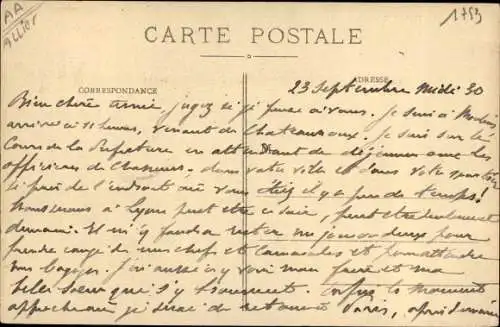 AA
ALLIER
1753
CARTE POSTALE
CORRESPONDANCE
ADRESSE
23 Septembre Midi 30
Bien chère amie, jugez si je pense à vous. Je suis à Moulins
arrivé à 11 heures, venant de Chateauroux. Je suis sur le
Cours de la Préfecture en attendant de déjeuner avec les
officiers de Chasseurs. dans votre ville et dans votre quartier
si près de l'endroit où vous étiez il y a peu de temps!
à Lyon peut être ce soir, peut être seulement
demain. Et il m'y faudra rester un jour ou deux pour
prendre congé de mes chefs et camarades et
mes bagages. J'ai aussi à y voir mon frère et ma
belle soeur qui s'y trouvent. Enfin le moment
approche où je serai de retour à Paris, après demain